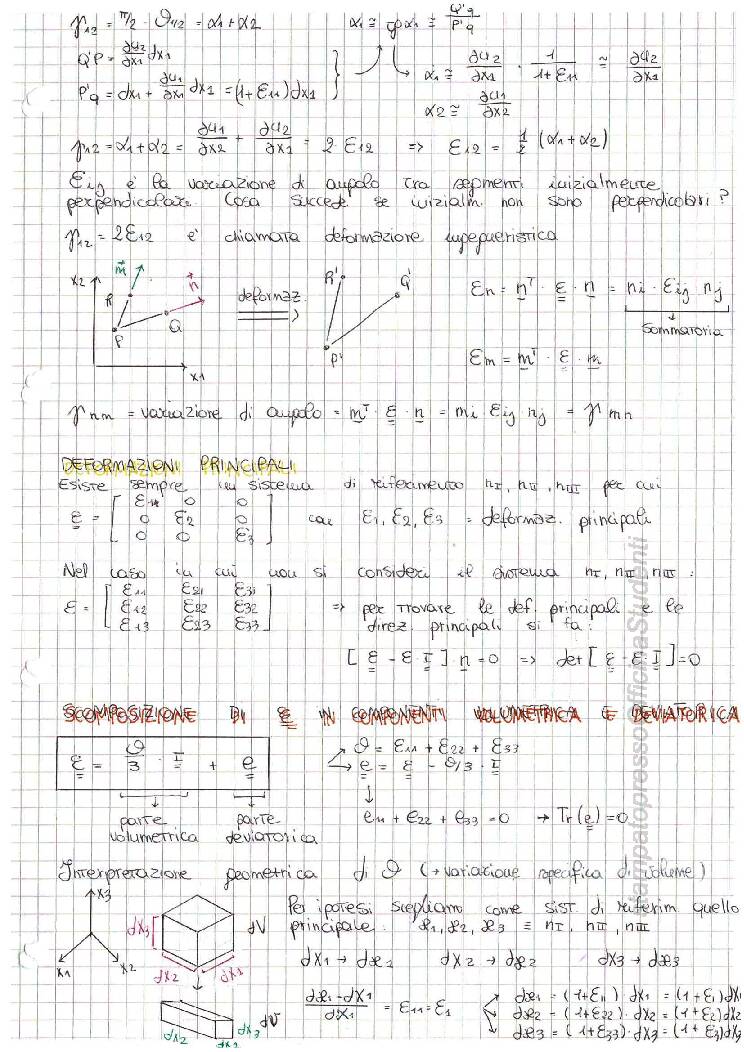 γ12 = π/2 - ϑ1/2 = α1 + α2     α1 ≅ tg α1 ≅ Q'q / P'q
Q'P = ∂u2/∂x1 dx1     α1 ≅ ∂u2/∂x1 · 1/(1+ε11) ≅ ∂u2/∂x1
P'q = dx1 + ∂u1/∂x1 dx1 = (1+ε11) dx1     α2 ≅ ∂u1/∂x2
γ12 = α1 + α2 = ∂u1/∂x2 + ∂u2/∂x1 = 2 ε12 ⇒ ε12 = 1/2 (α1+α2)
εij è la variazione di angolo tra segmenti inizialmente
perpendicolari. Cosa succede se inizialm. non sono perpendicolari?
γ12 = 2ε12 è chiamata deformazione ingegneristica
x2 m n R P Q x1 deformaz. R' Q' P'
εn = nT · ε · n = ni · εij nj
sommatoria
εm = mT · ε · m
γnm = variazione di angolo = mT · ε · n = mi · εij nj = γmn
DEFORMAZIONI PRINCIPALI
Esiste sempre un sistema di riferimento nI, nII, nIII per cui
ε = [ ε1 0 0
0 ε2 0
0 0 ε3 ] con ε1, ε2, ε3 = deformaz. principali
Nel caso in cui non si consideri il sistema nI, nII, nIII :
ε = [ ε11 ε21 ε31
ε12 ε22 ε32
ε13 ε23 ε33 ] ⇒ per trovare le def. principali e le
direz. principali si fa:
[ ε - ε I ] · n = 0 ⇒ det [ ε - ε I ] = 0
SCOMPOSIZIONE DI ε IN COMPONENTI VOLUMETRICA E DEVIATORICA
ε = ϑ/3 · I + e
ϑ = ε11 + ε22 + ε33
e = ε - ϑ/3 · I
parte volumetrica
parte deviatorica
e11 + e22 + e33 = 0 → Tr(e) = 0
Interpretazione geometrica di ϑ (→ variazione specifica di volume)
x3 x1 x2
dx3 dV dx2 dx1
Per ipotesi scegliamo come sist. di riferim quello
principale. x1, x2, x3 ≡ nI, nII, nIII
dx1 → dx1 dx2 → dx2 dx3 → dx3
(dx1 - dx1)/dx1 = ε11 = ε1
dx1 = (1+ε11) · dx1 = (1+ε1) dx1
dx2 = (1+ε22) · dx2 = (1+ε2) dx2
dx3 = (1+ε33) · dx3 = (1+ε3) dx3
dx2 dx3 dV
dx2
Stampato presso OfficinaStudenti